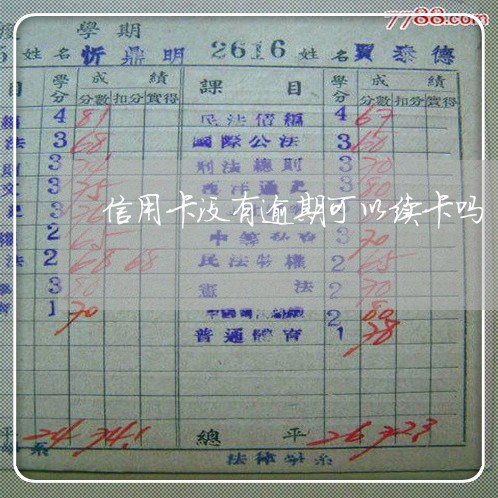 7788.com
學期
姓名忻鼎明 2616 姓名賈泰德
目 學分 成績 課目 學分 成績
分數 扣分 實得 分數 扣分 實得
4 81 民法債編 4 67
法 3 68 國際公法 3 60
3 刑法總則 3 70
3 75 3 80
信用卡没有逾期可以续卡吗
2 65 3 70
法 2 68 68 民法物權 2 65
3 80 憲法 2 70
1 70 2 80
普通體育 1 78
平 24 74.1 總平 26 72.3
系 法律學系